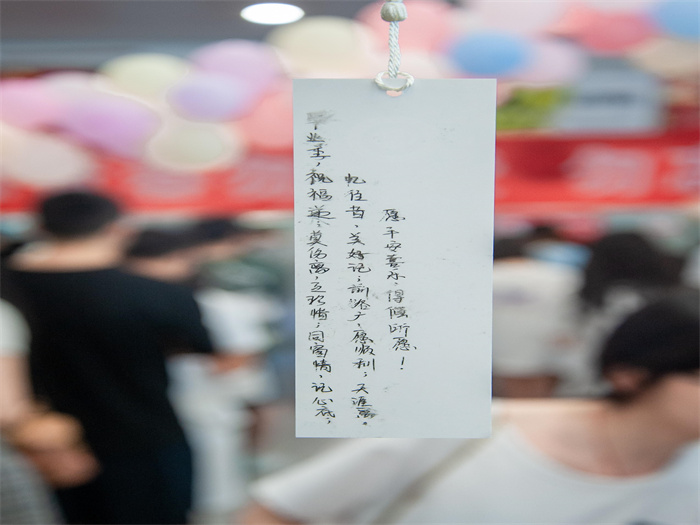 毕业季，祝福递；莫伤离，互珍惜；同窗情，记心底；
忆往昔，美好记；前途广，愿顺利；天涯离。
愿平安喜乐，得偿所愿！